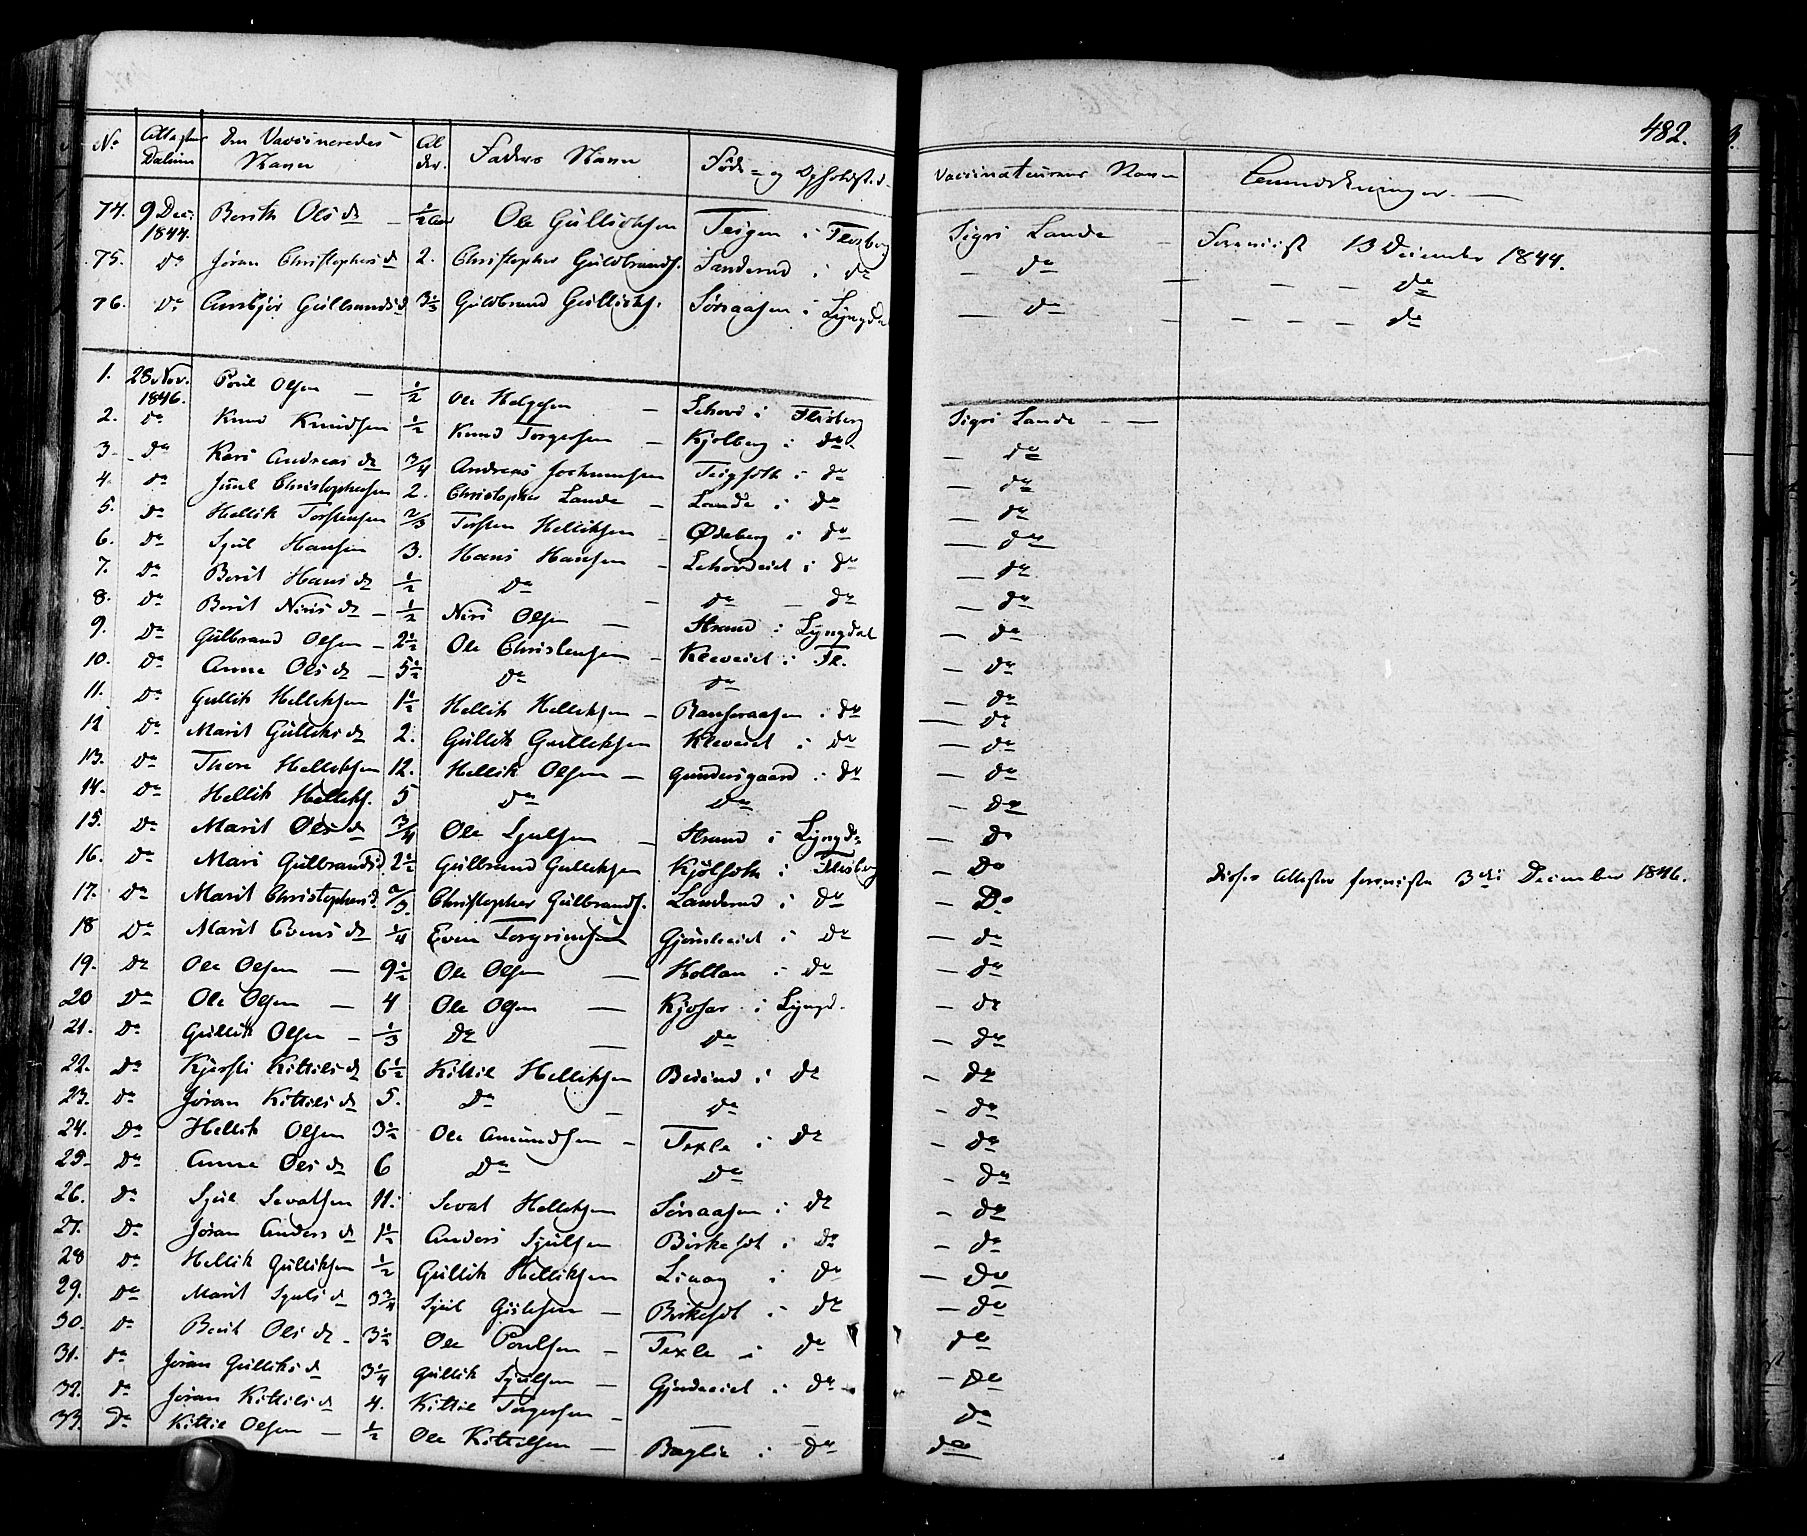 482.
No Attesters Datum Den Vaccineredes Navn Alder. Faders Navn Føde- og Opholdsted Vaccinateurens Navn Anmærkninger.
74. 9 Dec. 1844. Berith Olsdr ½ Aar Ole Gullichsen Teigen i Flesberg Sigri Lande Foreviist 13 December 1844.
75. do Jøran Christophersdr 2. Christopher Guldbrands. Landerud i do do do
76. do Ansbjør Gulbrandsd 3½ Guldbrand Gullichs. Sørsaasen i Lyngdal do do
1. 28 Nov. 1846. Poul Olsen ½ Ole Helgesen Lehovd i Flesberg Sigri Lande
2. do Knud Knudsen ½ Knud Torgersen Kjølberg i do do
3. do Kari Andreasdr ¾ Andreas Jochumsen Teigsoth i do do
4. do Juul Christophersen 2. Christopher Lande Lande i do do
5. do Hellik Torstensen 2/3 Torsten Helliksen Ødeberg i do do
6. do Sjul Hansen 3. Hans Hansen Lehovdeiet i do do
7. do Berit Hansdr ½ do do do do
8. do Berit Nirisdr ½ Niri Olsen Strand i Lyngdal do
9. do Gulbrand Olsen 2½ Ole Christensen Kleveiet i Fl. do
10. do Anne Olsdr 5½ do do do
11. do Gullik Helleksen 1½ Hellik Helleksen Ranseraasen i do do
12 do Marit Gulliksdr 2. Gullik Gulleksen Kleveiet i do do
13. do Thore Helleksen 12. Hellik Olsen Gundersgaard i do do
14. do Hellik Helleks. 5 do do do
15. do Marit Olsdr ¾ Ole Sjulsen Strand i Lyngd. do
16. do Mari Gulbrandsd. 2½ Gulbrand Gulleksen Kjølsoth i Flesberg do Disse Attester foreviste 3die December 1846.
17. do Marit Christophersd. 2/3 Christopher Gulbrands. Landerud i do do
18 do Marit Evensdr ¼ Even Torgrimsen Gjømleeiet i do do
19. do Ole Olsen 9½ Ole Olsen Kollan i do do
20 do Ole Olsen 4 Ole Olsen Kjosar i Lyngd. do
21. do Gullik Olsen 1/3 do do do
22. do Kjersti Kittilsdr 6½ Kittil Helliksen Bekind i do do
23. do Jøran Kittilsdr 5. do do do
24. do Hellik Olsen 3½ Ole Amundsen Texle i do do
25. do Anne Olsdr 6 do do do
26. do Sjul Sevatsen 11. Sevat Helleksen Sørsaasen i do do
27. do Jøran Andersdr 1½ Anders Sjulsen Birkesdt i do do
28 do Hellik Gulliksen ½ Gullik Helliksen Linaas i do do
29. do Marit Sjulsdr 3¾ Sjul Gislesen Birkesdt i do do
30. do Berit Olsdr 3½ Ole Poulsen Texle i do do
31. do Jøran Gulliksdr 3¼ Gullik Sjulsen Gjudeeiet i do do
32. do Jøran Kittilsdr 4. Kittil Torgersen do
33. do Kittil Olsen ½ Ole Kittilsen Baglie i do do